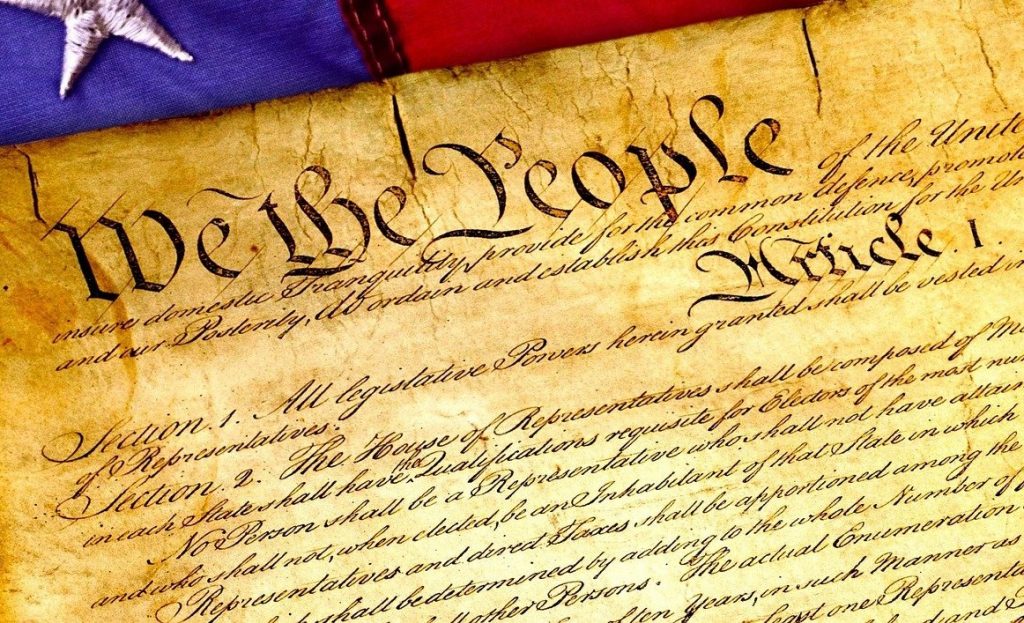 We the People of the Unite
insure domestic Tranquility, provide for the common defence, promote
and our Posterity, do ordain and establish this Constitution for the Un
Article. I.
Section. 1. All legislative Powers herein granted shall be vested in
of Representatives.
Section. 2. The House of Representatives shall be composed of Me
in each State shall have the Qualifications requisite for Electors of the most nu
No Person shall be a Representative who shall not have attain
and who shall not, when elected, be an Inhabitant of that State in which
Representatives and direct Taxes shall be apportioned among the
shall be determined by adding to the whole Number of
other Persons. The actual Enumeration
of ten Years, in such Manner as
least one Representa